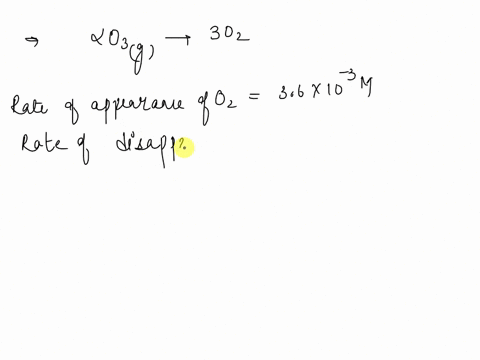 ⇒ 2O₃(g) → 3O₂
Rate of appearance of O₂ = 3.6 × 10⁻³ M
Rate of disapp